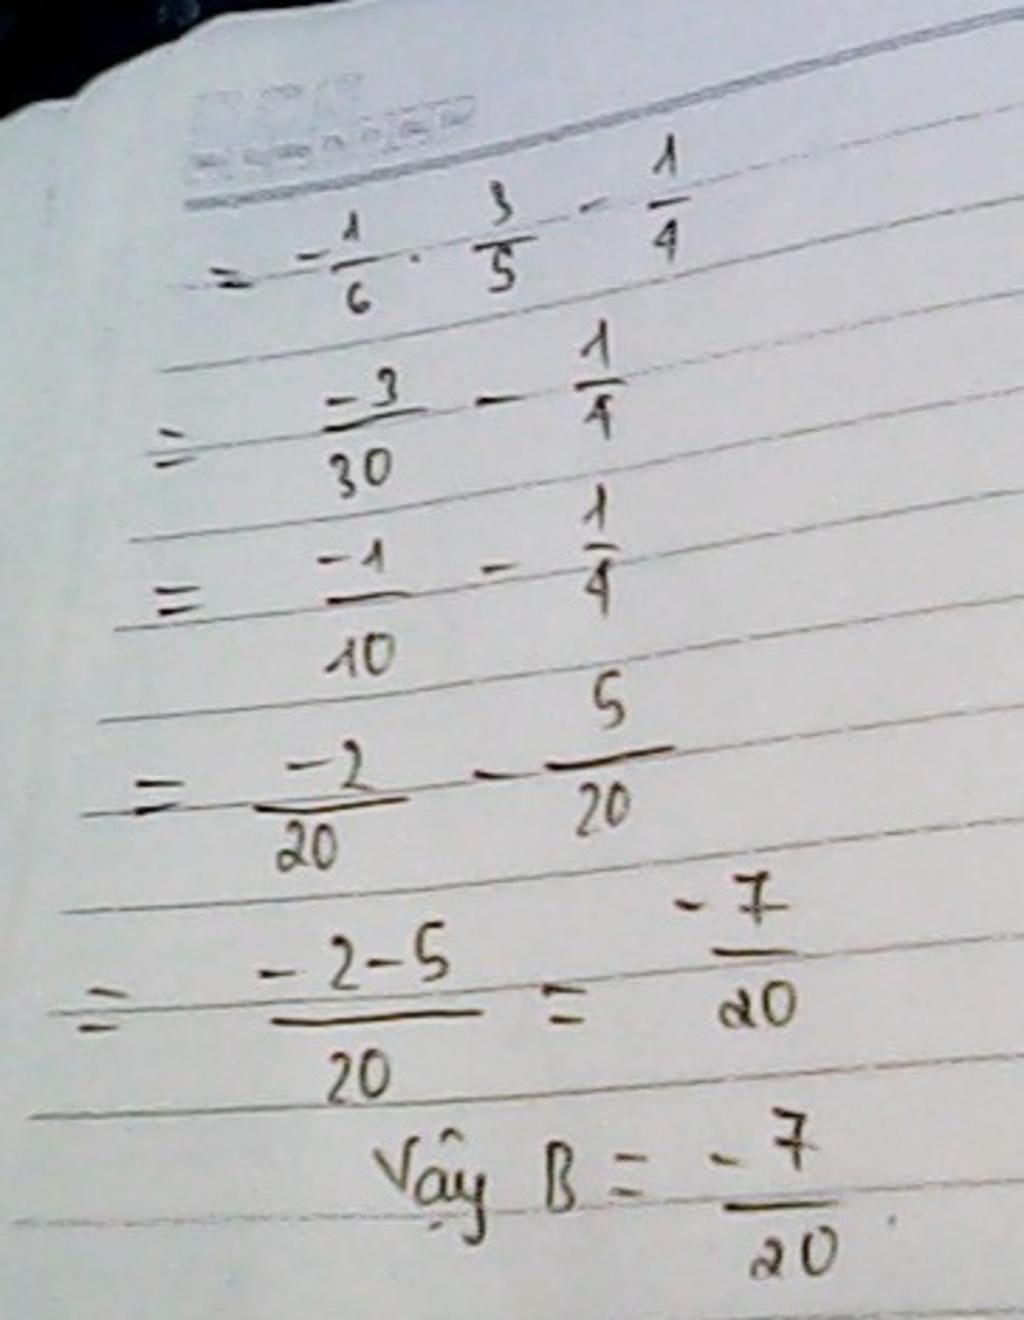 = -1/6 . 3/5 - 1/4
= -3/30 - 1/4
= -1/10 - 1/4
= -2/20 - 5/20
= -2-5/20 = -7/20
Vậy B = -7/20.